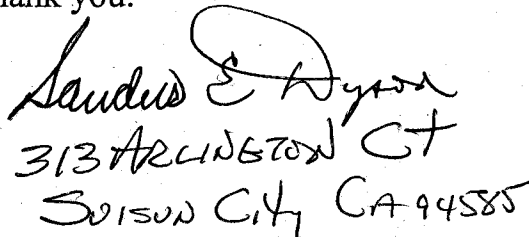 thank you.
Sandus E Dyson
313 ARLINGTON Ct
SUISUN City CA 94585